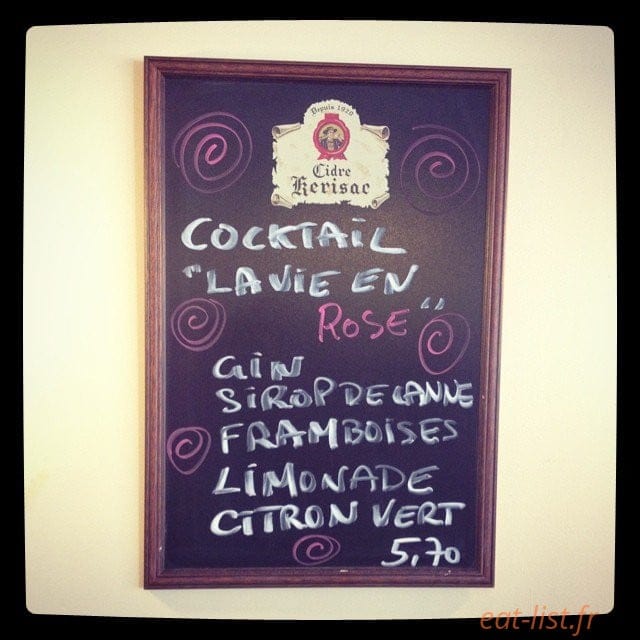 Depuis 1920
Cidre
Kerisac
COCKTAIL
"LA VIE EN
ROSE"
GIN
SIROP DE CANNE
FRAMBOISES
LIMONADE
CITRON VERT
5,70
eat-list.fr